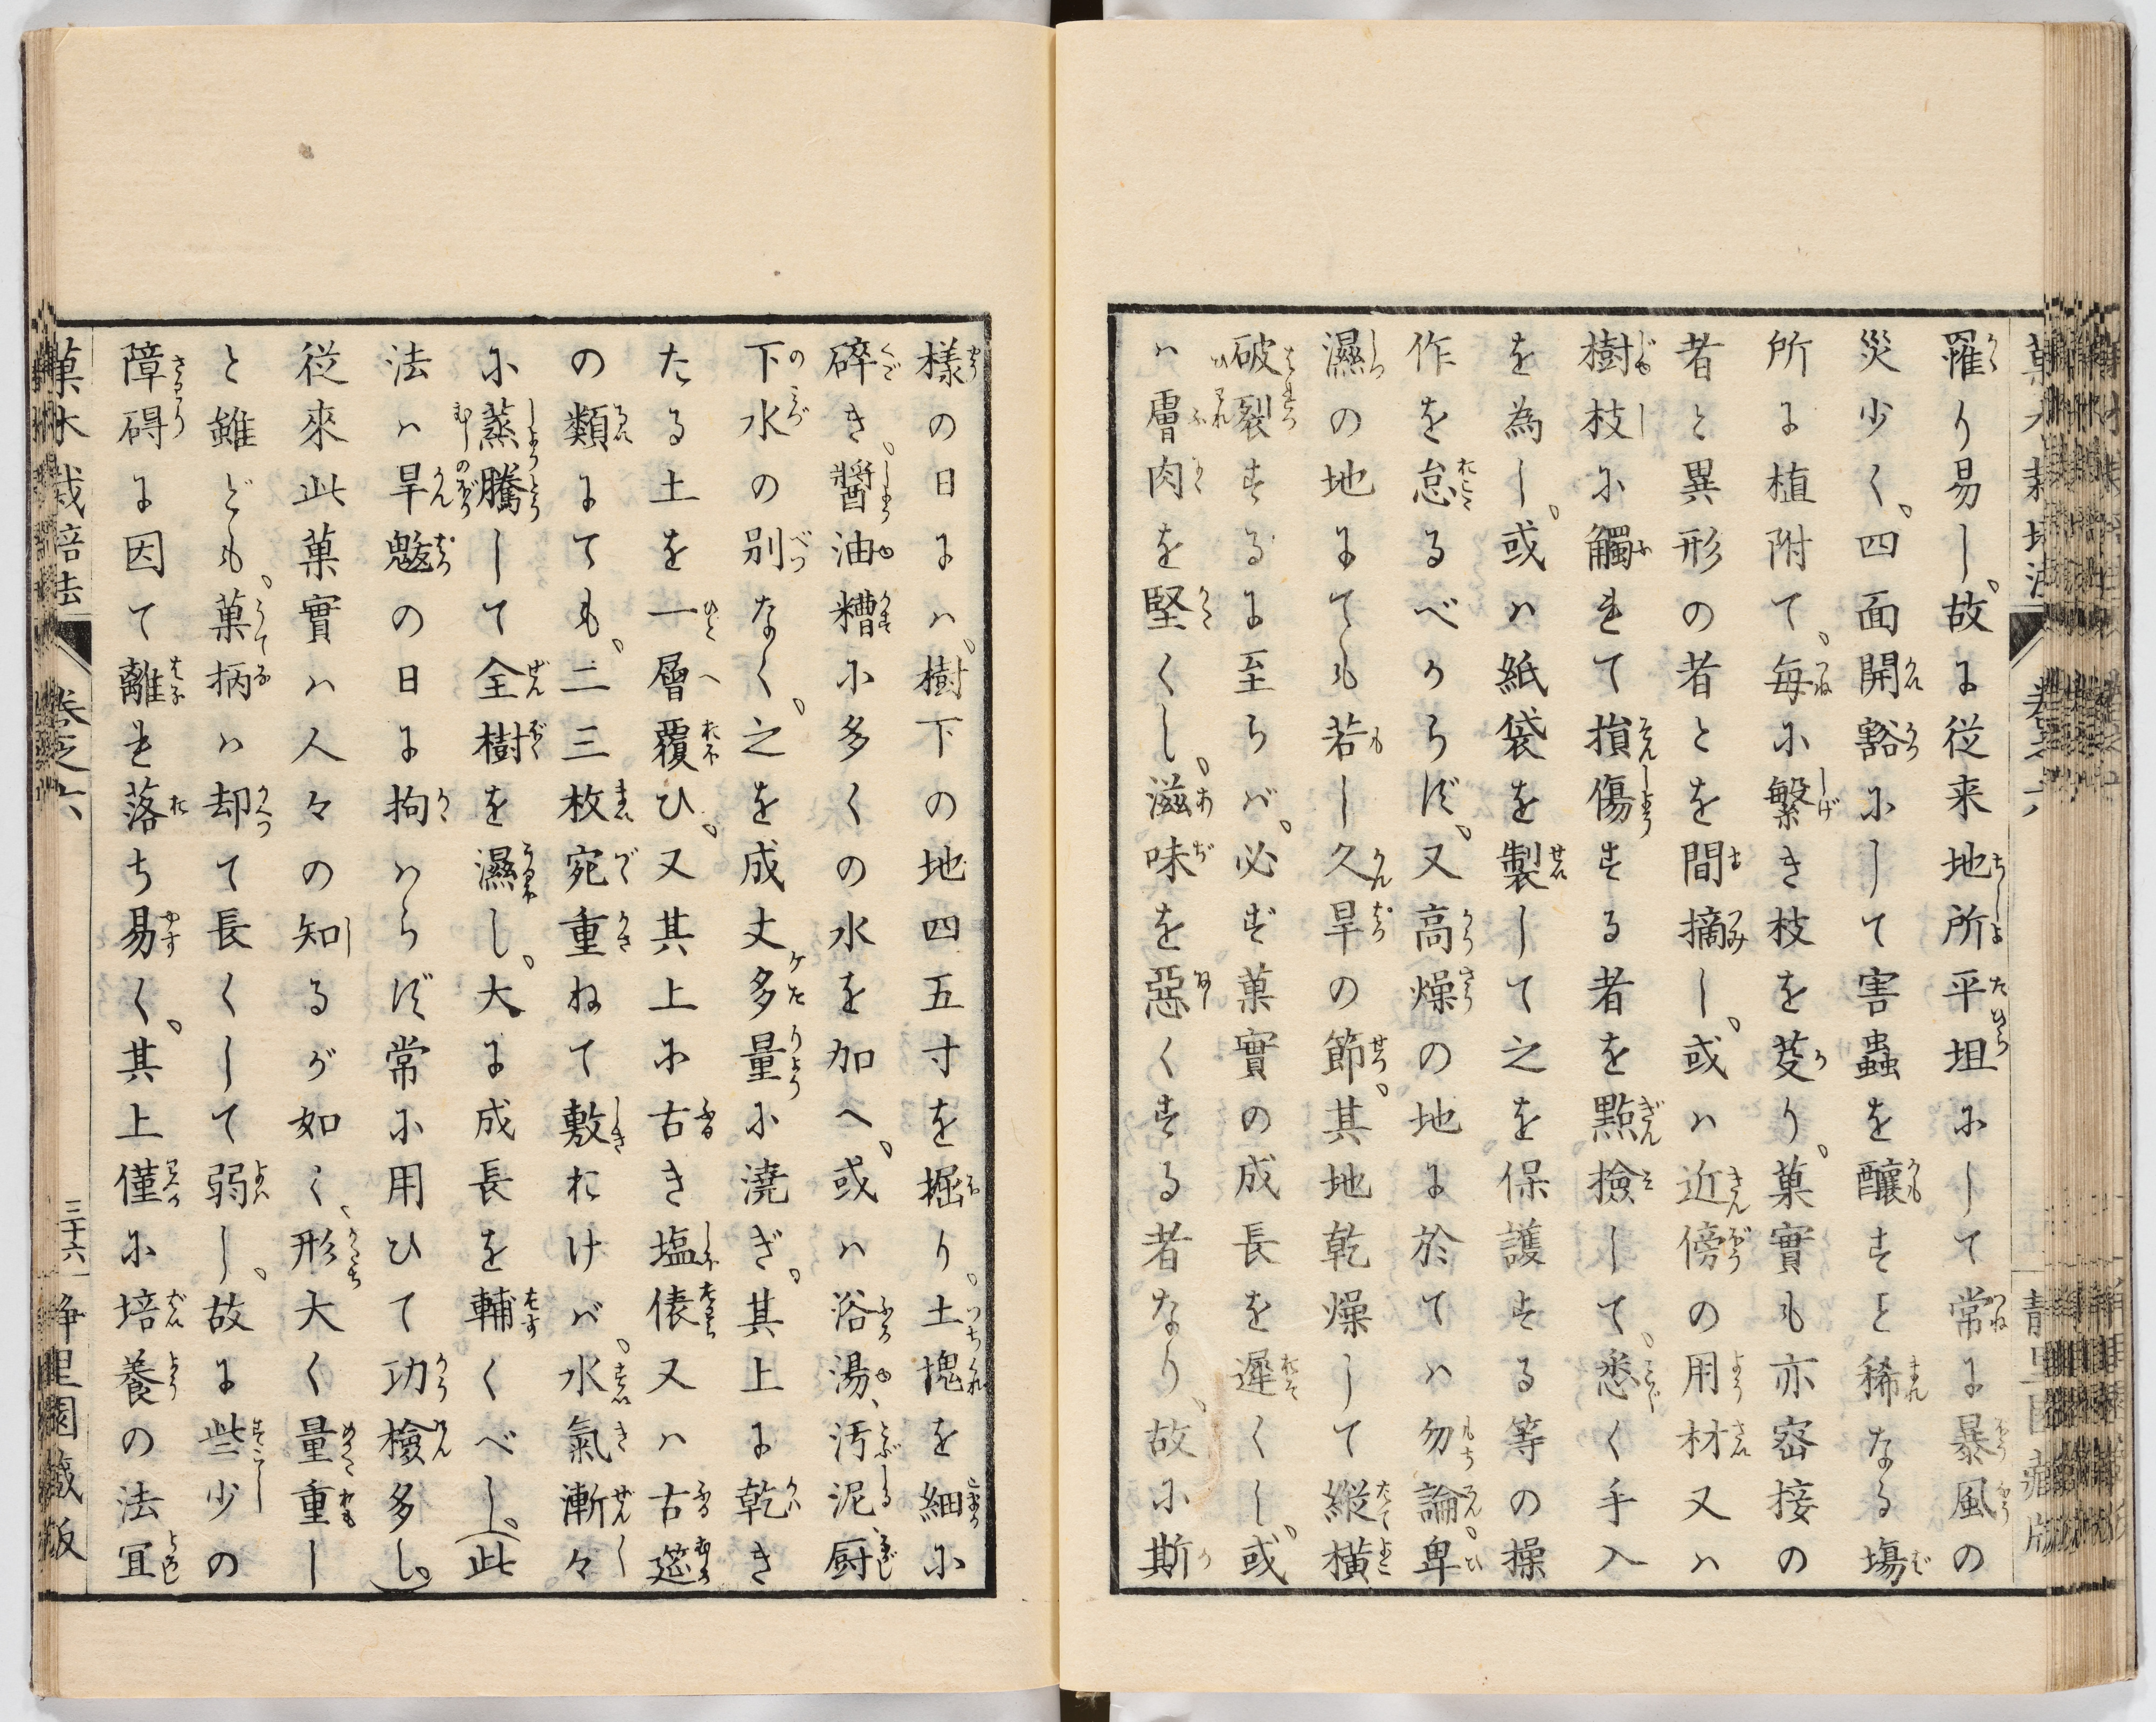 羅り易し、故に従来地所平坦にして常に暴風の
災少く、四面開豁にして害蟲を釀すこと稀なる塲
所に植附て、毎に繁き枝を芟り、菓實も亦密接の
者と異形の者とを間摘し、或ハ近傍の用材又ハ
樹枝に觸れて損傷する者を點撿して、悉く手入
を為し、或ハ紙袋を製して之を保護する等の操
作を怠るべからず、又高燥の地に於てハ勿論、卑
濕の地にても若し久旱の節、其地乾燥して縦横
破裂するに至らバ、必ず菓實の成長を遲くし、或
ハ膚肉を堅くし、滋味を惡くする者なり、故に斯
様の日にハ、樹下の地四五寸を掘り、土塊を細に
碎き、醤油糟に多くの水を加へ、或ハ浴湯、汚泥厨
下水の別なく、之を成丈多量に澆ぎ、其上に乾き
たる土を一層覆ひ、又其上に古き塩俵又ハ古筵
の類にても、二三枚宛重ねて敷おけバ、水氣漸々
に蒸騰して全樹を濕し、大に成長を輔くべし、（此
法ハ旱魃の日に拘ハらず常に用ひて功檢多し。）
従來此菓實ハ人々の知るが如く、形大く量重し
と雖ども、菓柄ハ却て長くして弱し、故に些少の
障碍に因て離れ落ち易く、其上僅に培養の法冝
菓木栽培法 巻之六 三十六 静里園蔵版